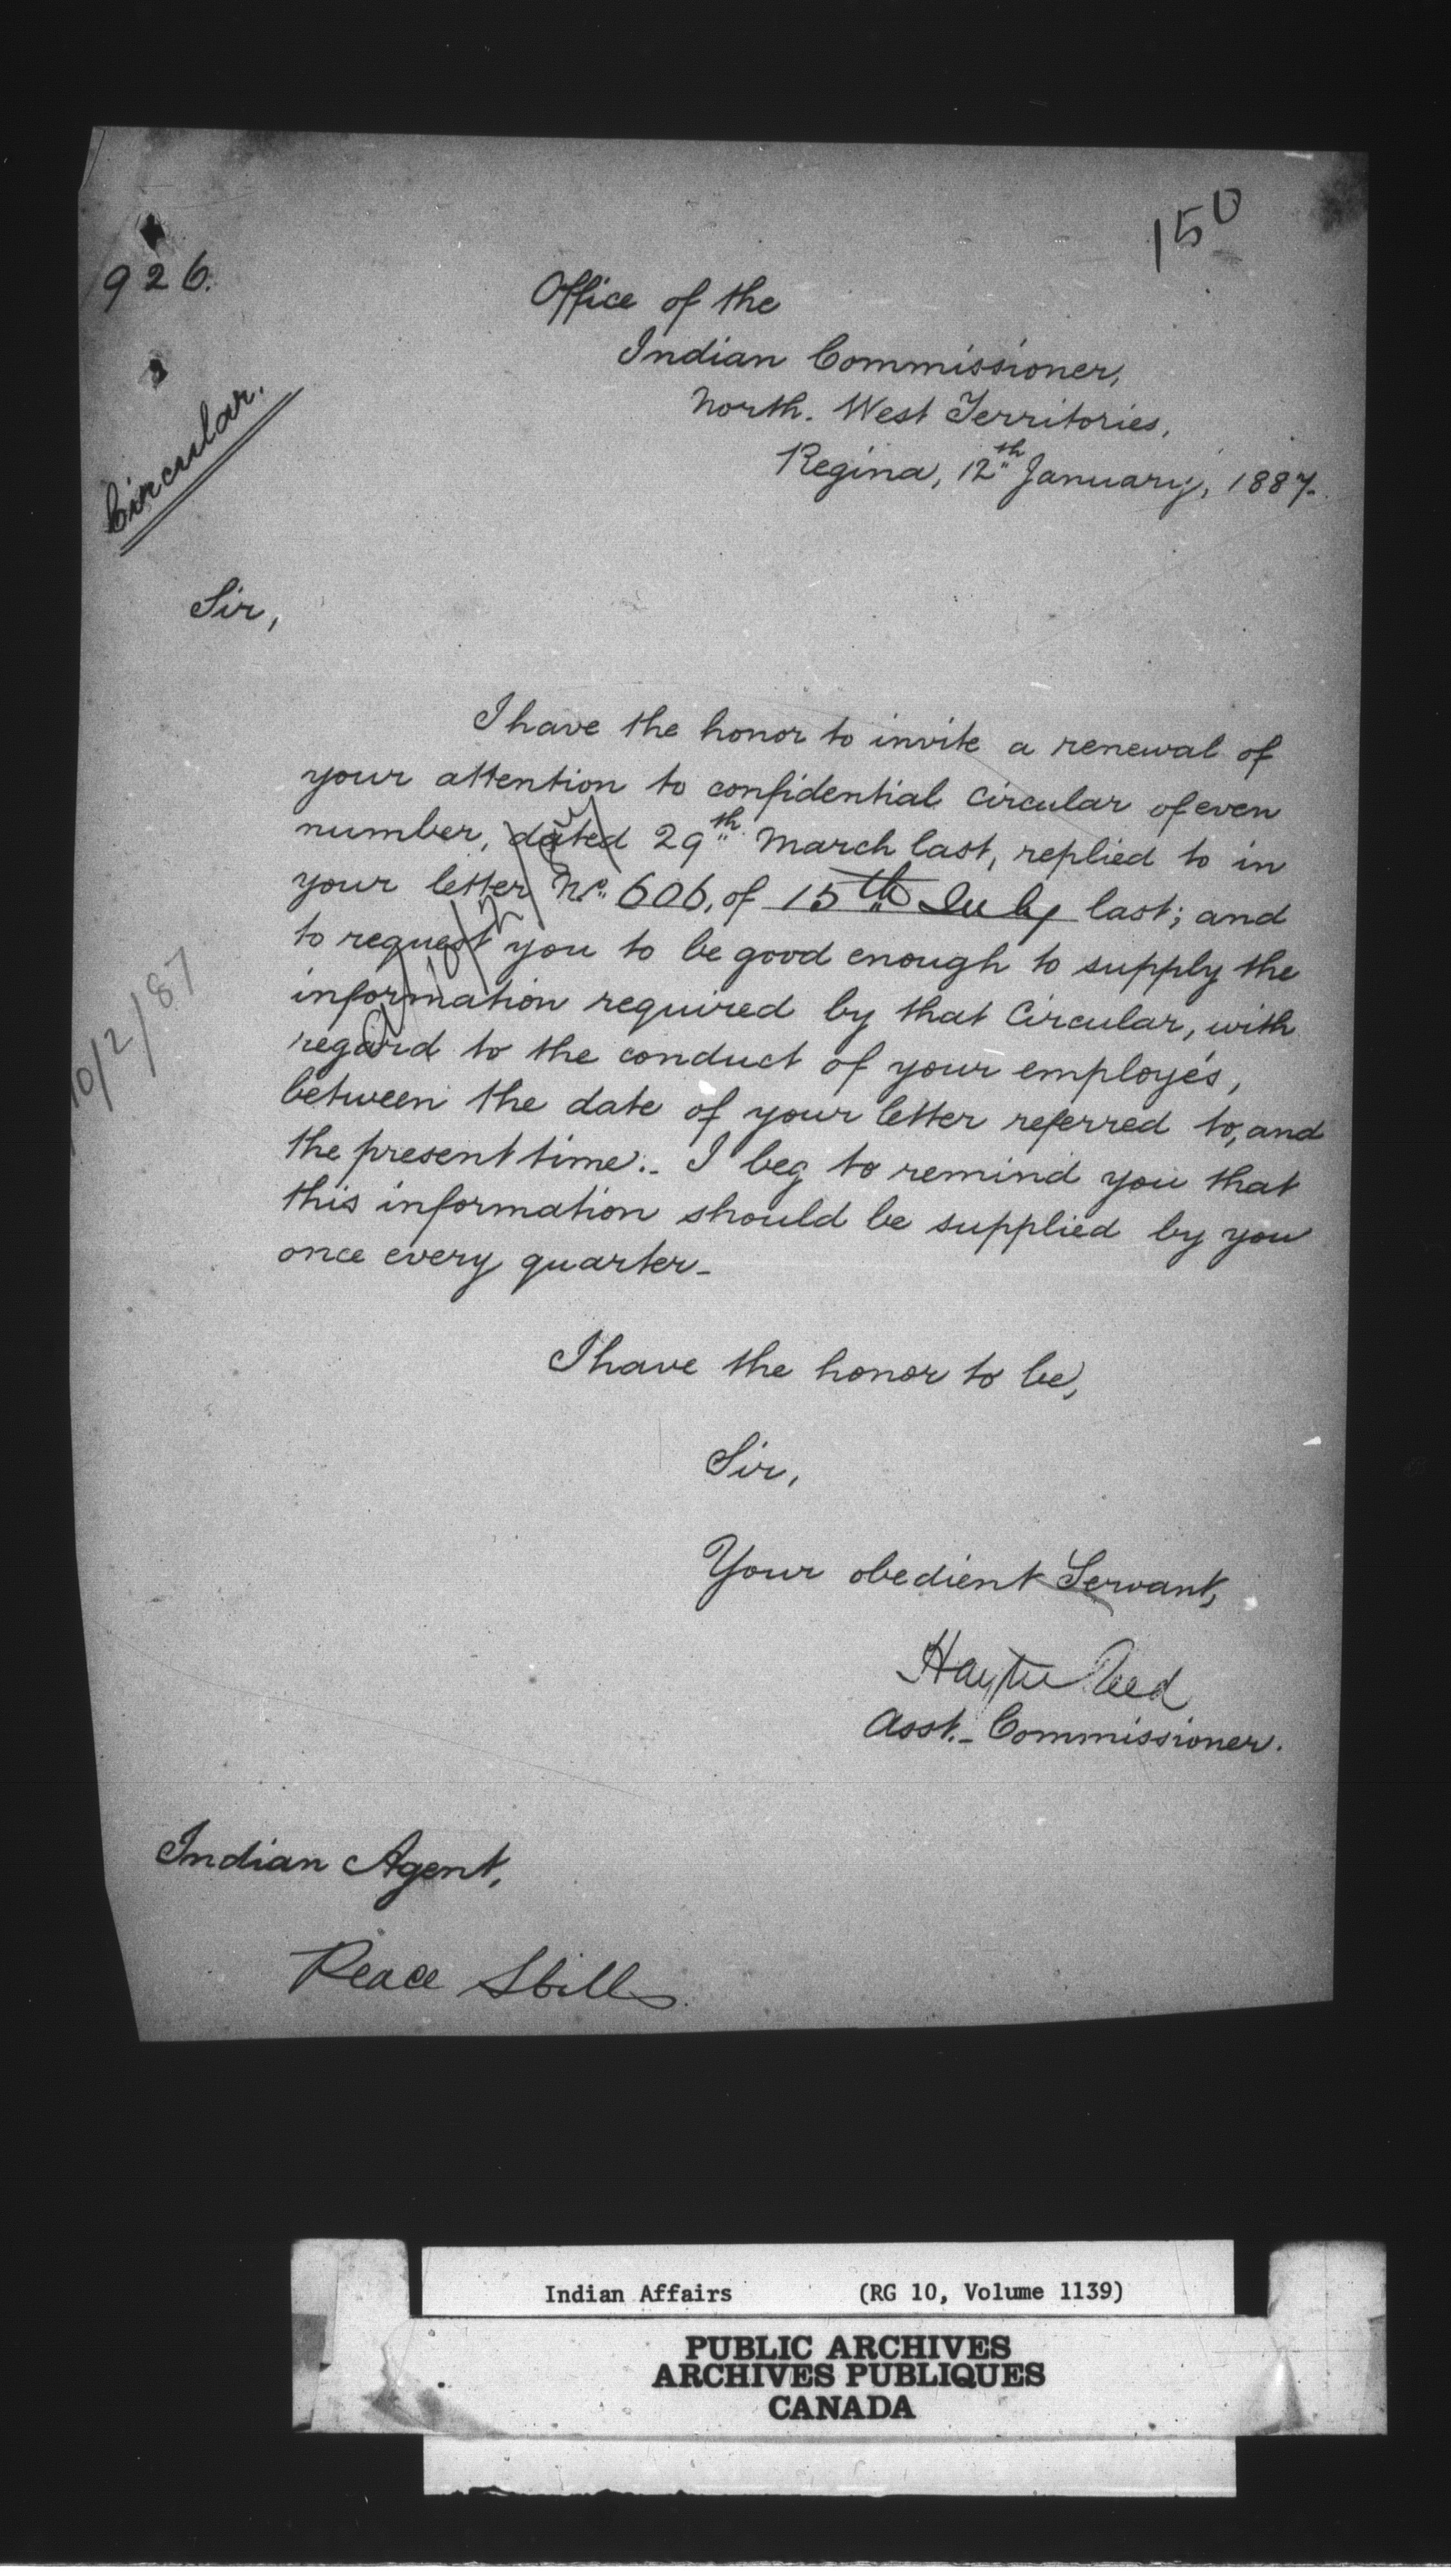 150
926.
Circular.
Office of the
Indian Commissioner,
North. West Territories,
Regina, 12th January, 1887.
Sir,
I have the honor to invite a renewal of
your attention to confidential Circular of even
number, dated 29th March last, replied to in
your letter No. 606, of 15th July last; and
to request you to be good enough to supply the
information required by that Circular, with
regard to the conduct of your employés,
between the date of your letter referred to, and
the present time.. I beg to remind you that
this information should be supplied by you
once every quarter-
10/2/87
I have the honor to be,
Sir,
Your obedient Servant,
Hayter Reed
Asst.- Commissioner.
Indian Agent,
Peace Hills
Indian Affairs (RG 10, Volume 1139)
PUBLIC ARCHIVES
ARCHIVES PUBLIQUES
CANADA